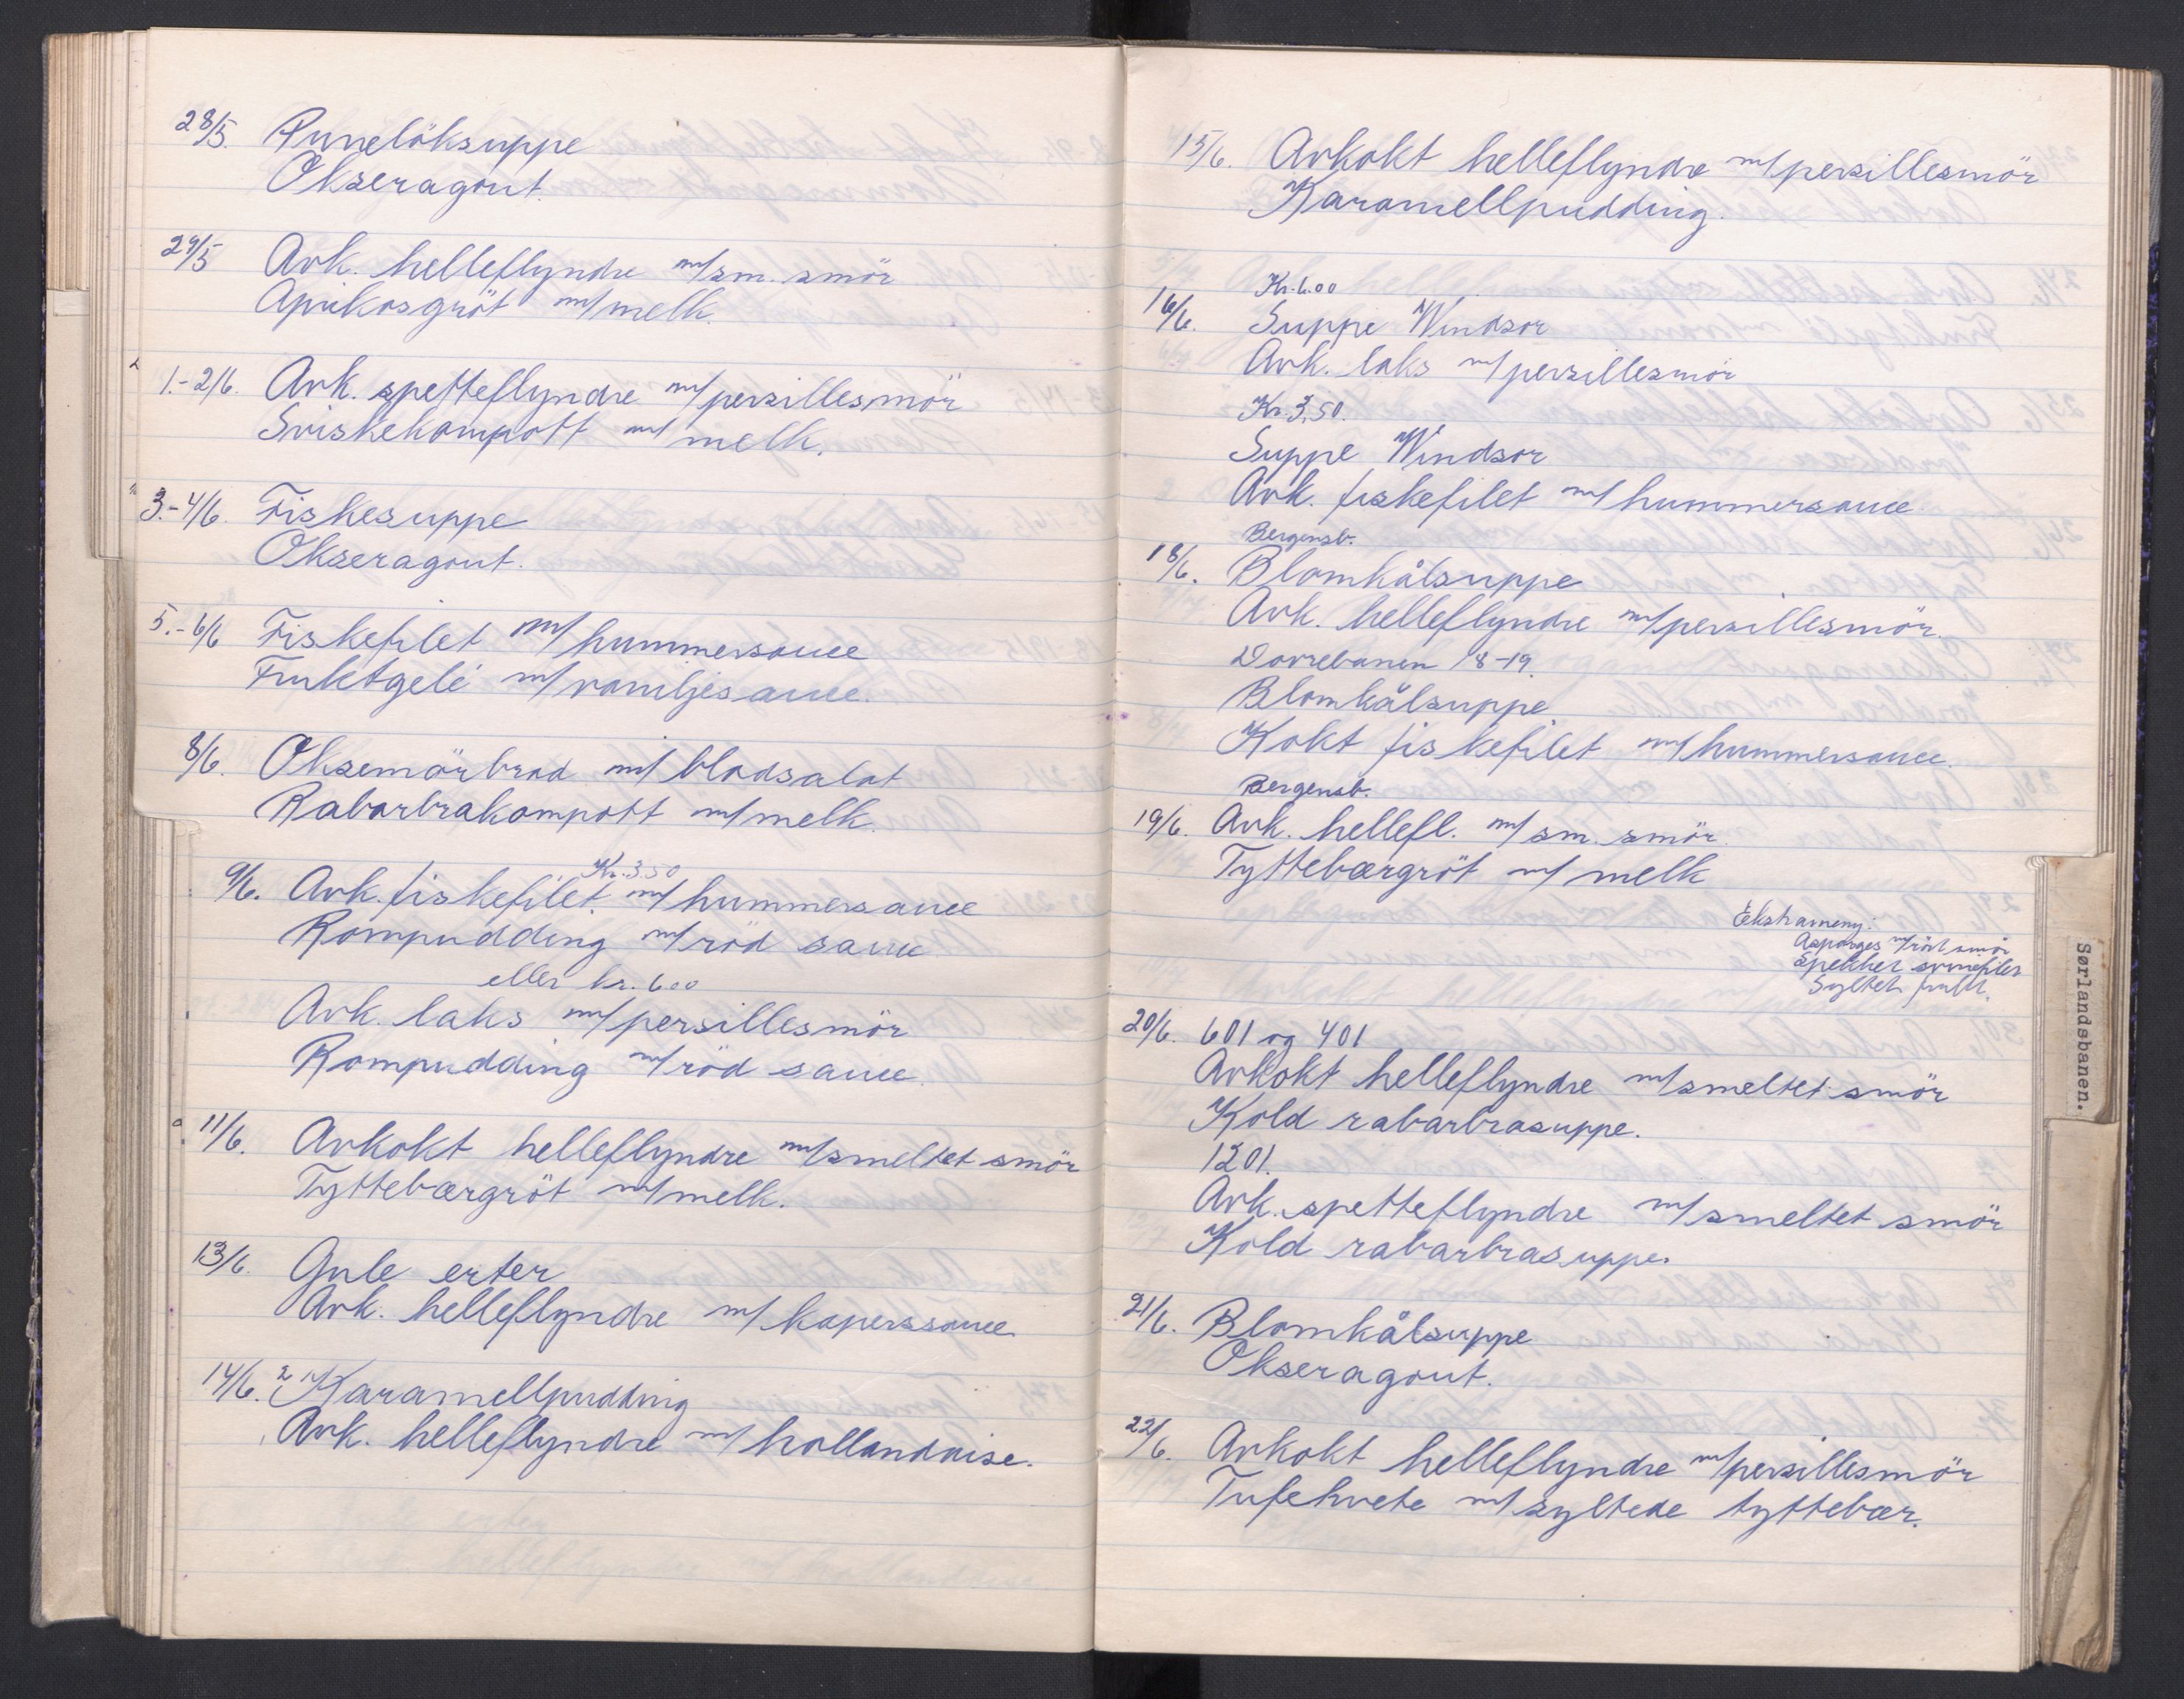 28/5. Purrelöksuppe
Okseragout.
29/5 Avk. helleflyndre m/sm. smör
Aprikosgröt m/melk.
1.-2/6. Avk. spetteflyndre m/persillesmör
Sviskekompott m/ melk.
3.-4/6. Fiskesuppe
Okseragout.
5.-6/6 Fiskefilet m/hummersauce
Fruktgelé m/vaniljesauce.
8/6. Oksemörbrad m/ bladsalat
Rabarbrakompott m/melk.
Kr. 3.50
9/6. Avk. fiskefilet m/hummersauce
Rompudding m/röd sauce
eller kr. 6.00
Avk. laks m/persillesmör
Rompudding m/röd sauce.
11/6. Avkokt helleflyndre m/smeltet smör
Tyttebærgröt m/melk.
13/6. Gule erter
Avk. helleflyndre m/ kaperssauce
14/6. 2 Karamellpudding
1 Avk. helleflyndre m/ hollandaise.
15/6. Avkokt helleflyndre m/persillesmör
Karamellpudding.
Kr. 6.00
16/6. Suppe Windsor
Avk. laks m/persillesmör
Kr. 3.50.
Suppe Windsor
Avk. fiskefilet m/ hummersauce
Bergensb.
18/6. Blomkålsuppe
Avk. helleflyndre m/persillesmör.
Dovrebanen 18-19.
Blomkålsuppe
Kokt fiskefilet m/hummersauce.
Bergensb.
19/6. Avk. hellefl. m/ sm. smör.
Tyttebærgröt m/ melk
Ekstrameny:
Asparges m/rört smör
Spekket svinefilet
Syltet frukt.
20/6. 601 og 401
Avkokt helleflyndre m/smeltet smör
Kold rabarbrasuppe.
1201.
Avk. spetteflyndre m/smeltet smör
Kold rabarbrasuppe.
21/6. Blomkålsuppe
Okseragout.
22/6. Avkokt helleflyndre m/persillesmör
Tufehvete m/syltede tyttebær.
Sørlandsbanen.